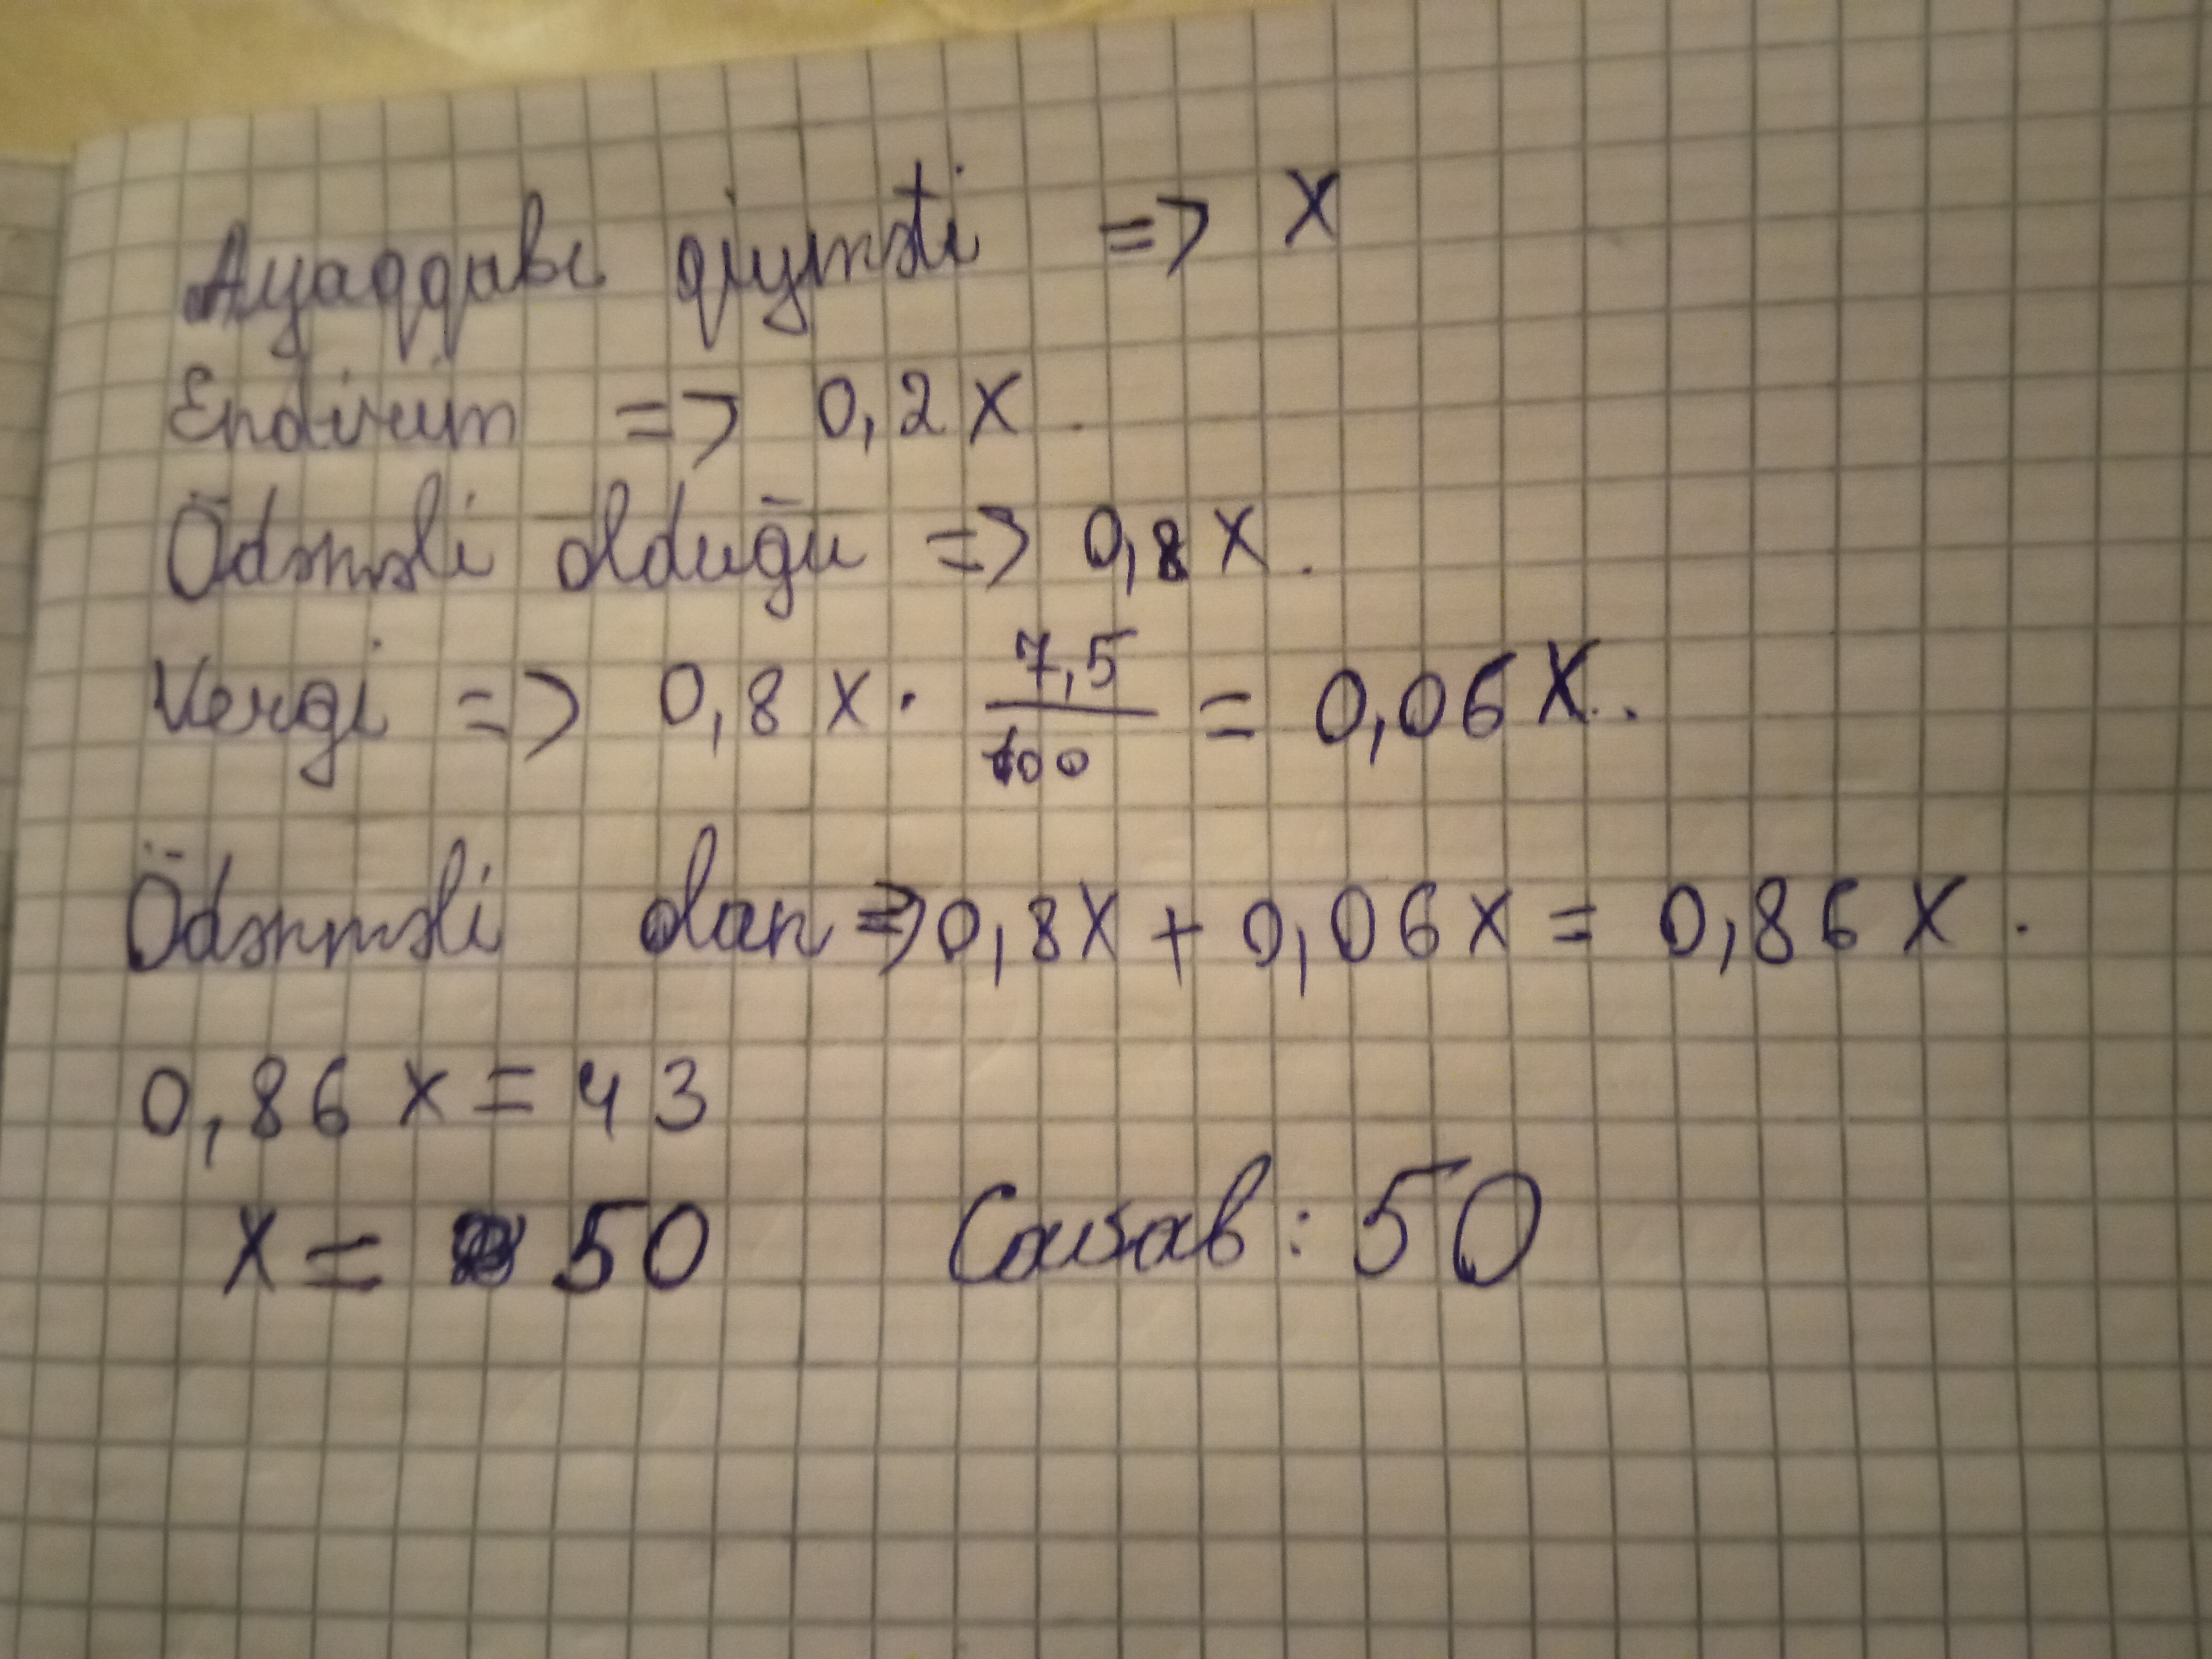 Ayaqqabı qiyməti => x
Endirim => 0,2x.
Ödəməli olduğu => 0,8x.
Vergi => 0,8x · 7,5/100 = 0,06x.
Ödənməli olan => 0,8x + 0,06x = 0,86x.
0,86x = 43
x = 50 Cavab: 50